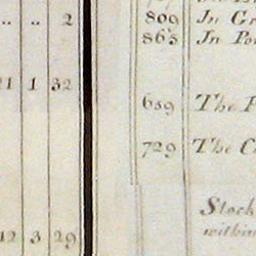 .. .. 2
21 1 32
12 3 29
809 In Gr
865 In Po
659 The P
729 The C
Stock
within